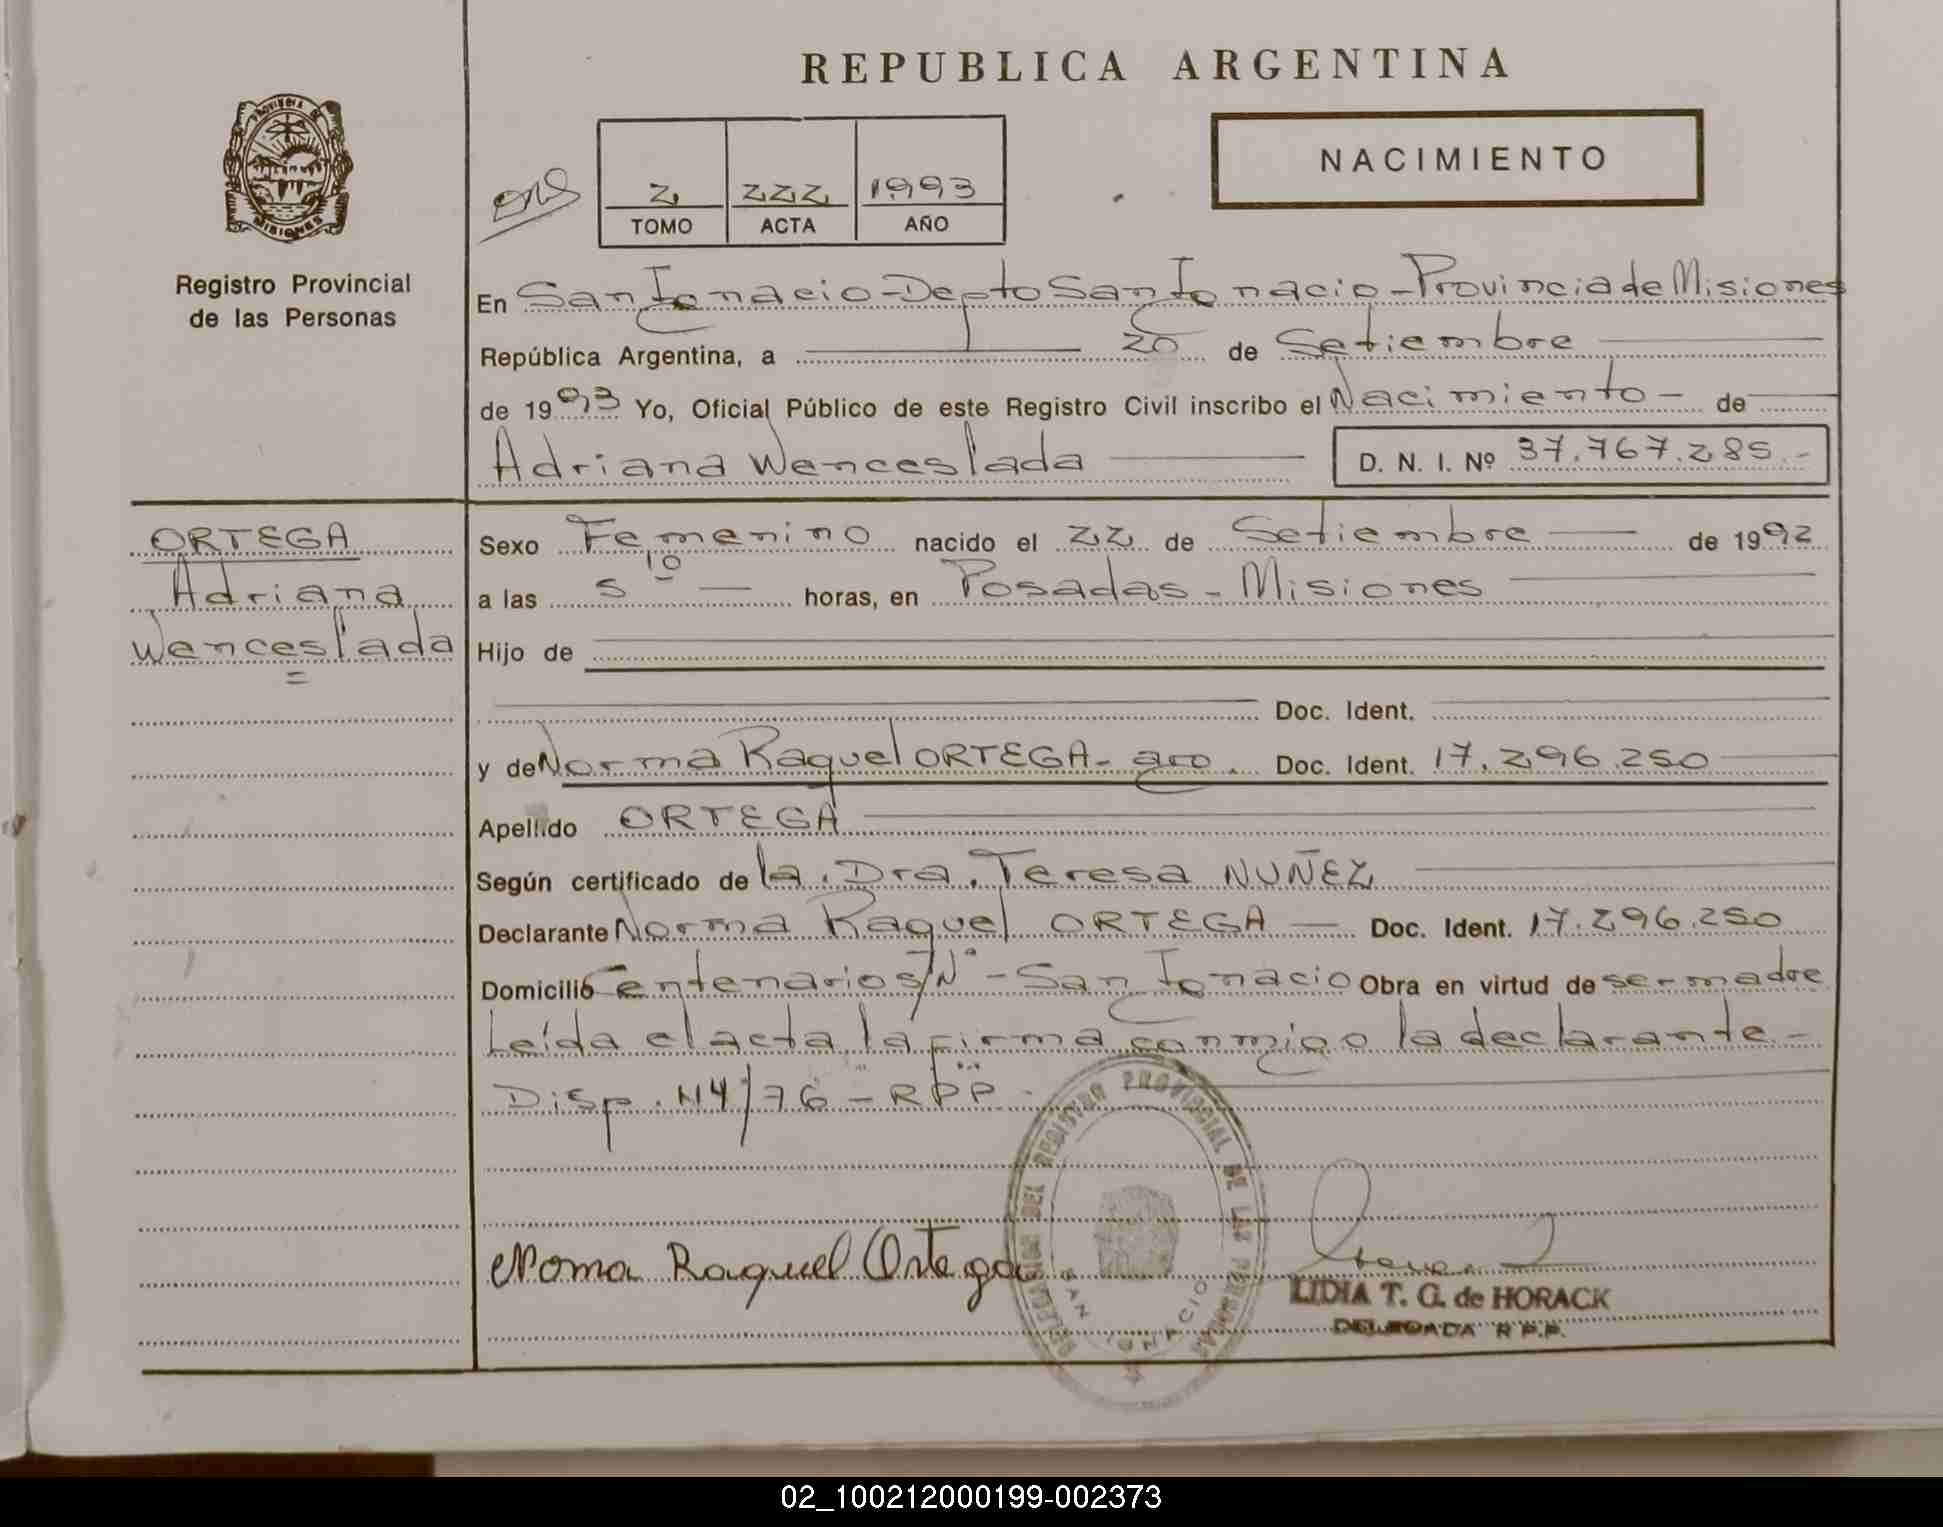 REPUBLICA ARGENTINA
PROVINCIA DE
MISIONES
Registro Provincial
de las Personas
2 222 1993
TOMO ACTA AÑO
NACIMIENTO
En San Ignacio - Depto San Ignacio - Provincia de Misiones
República Argentina, a 20 de Setiembre
de 1993 Yo, Oficial Público de este Registro Civil inscribo el Nacimiento - de
Adriana Wenceslada D. N. I. Nº 37.767.285.-
ORTEGA
Adriana
Wenceslada
Sexo Femenino nacido el 22 de Setiembre de 1992
a las 5 10 horas, en Posadas - Misiones
Hijo de
Doc. Ident.
y de Norma Raquel ORTEGA - arg. Doc. Ident. 17.296.250
Apellido ORTEGA
Según certificado de la Dra. Teresa NUÑEZ
Declarante Norma Raquel ORTEGA Doc. Ident. 17.296.250
Domicilio Centenario S/Nº - San Ignacio Obra en virtud de ser madre
Leída el acta, la firma conmigo la declarante -
Disp. 114/76 - RPP -
Noma Raquel Ortega
DELEGACION DEL REGISTRO PROVINCIAL DE LAS PERSONAS
SAN IGNACIO
LIDIA T. G. de HORACK
DELEGADA R P.P.
02_100212000199-002373